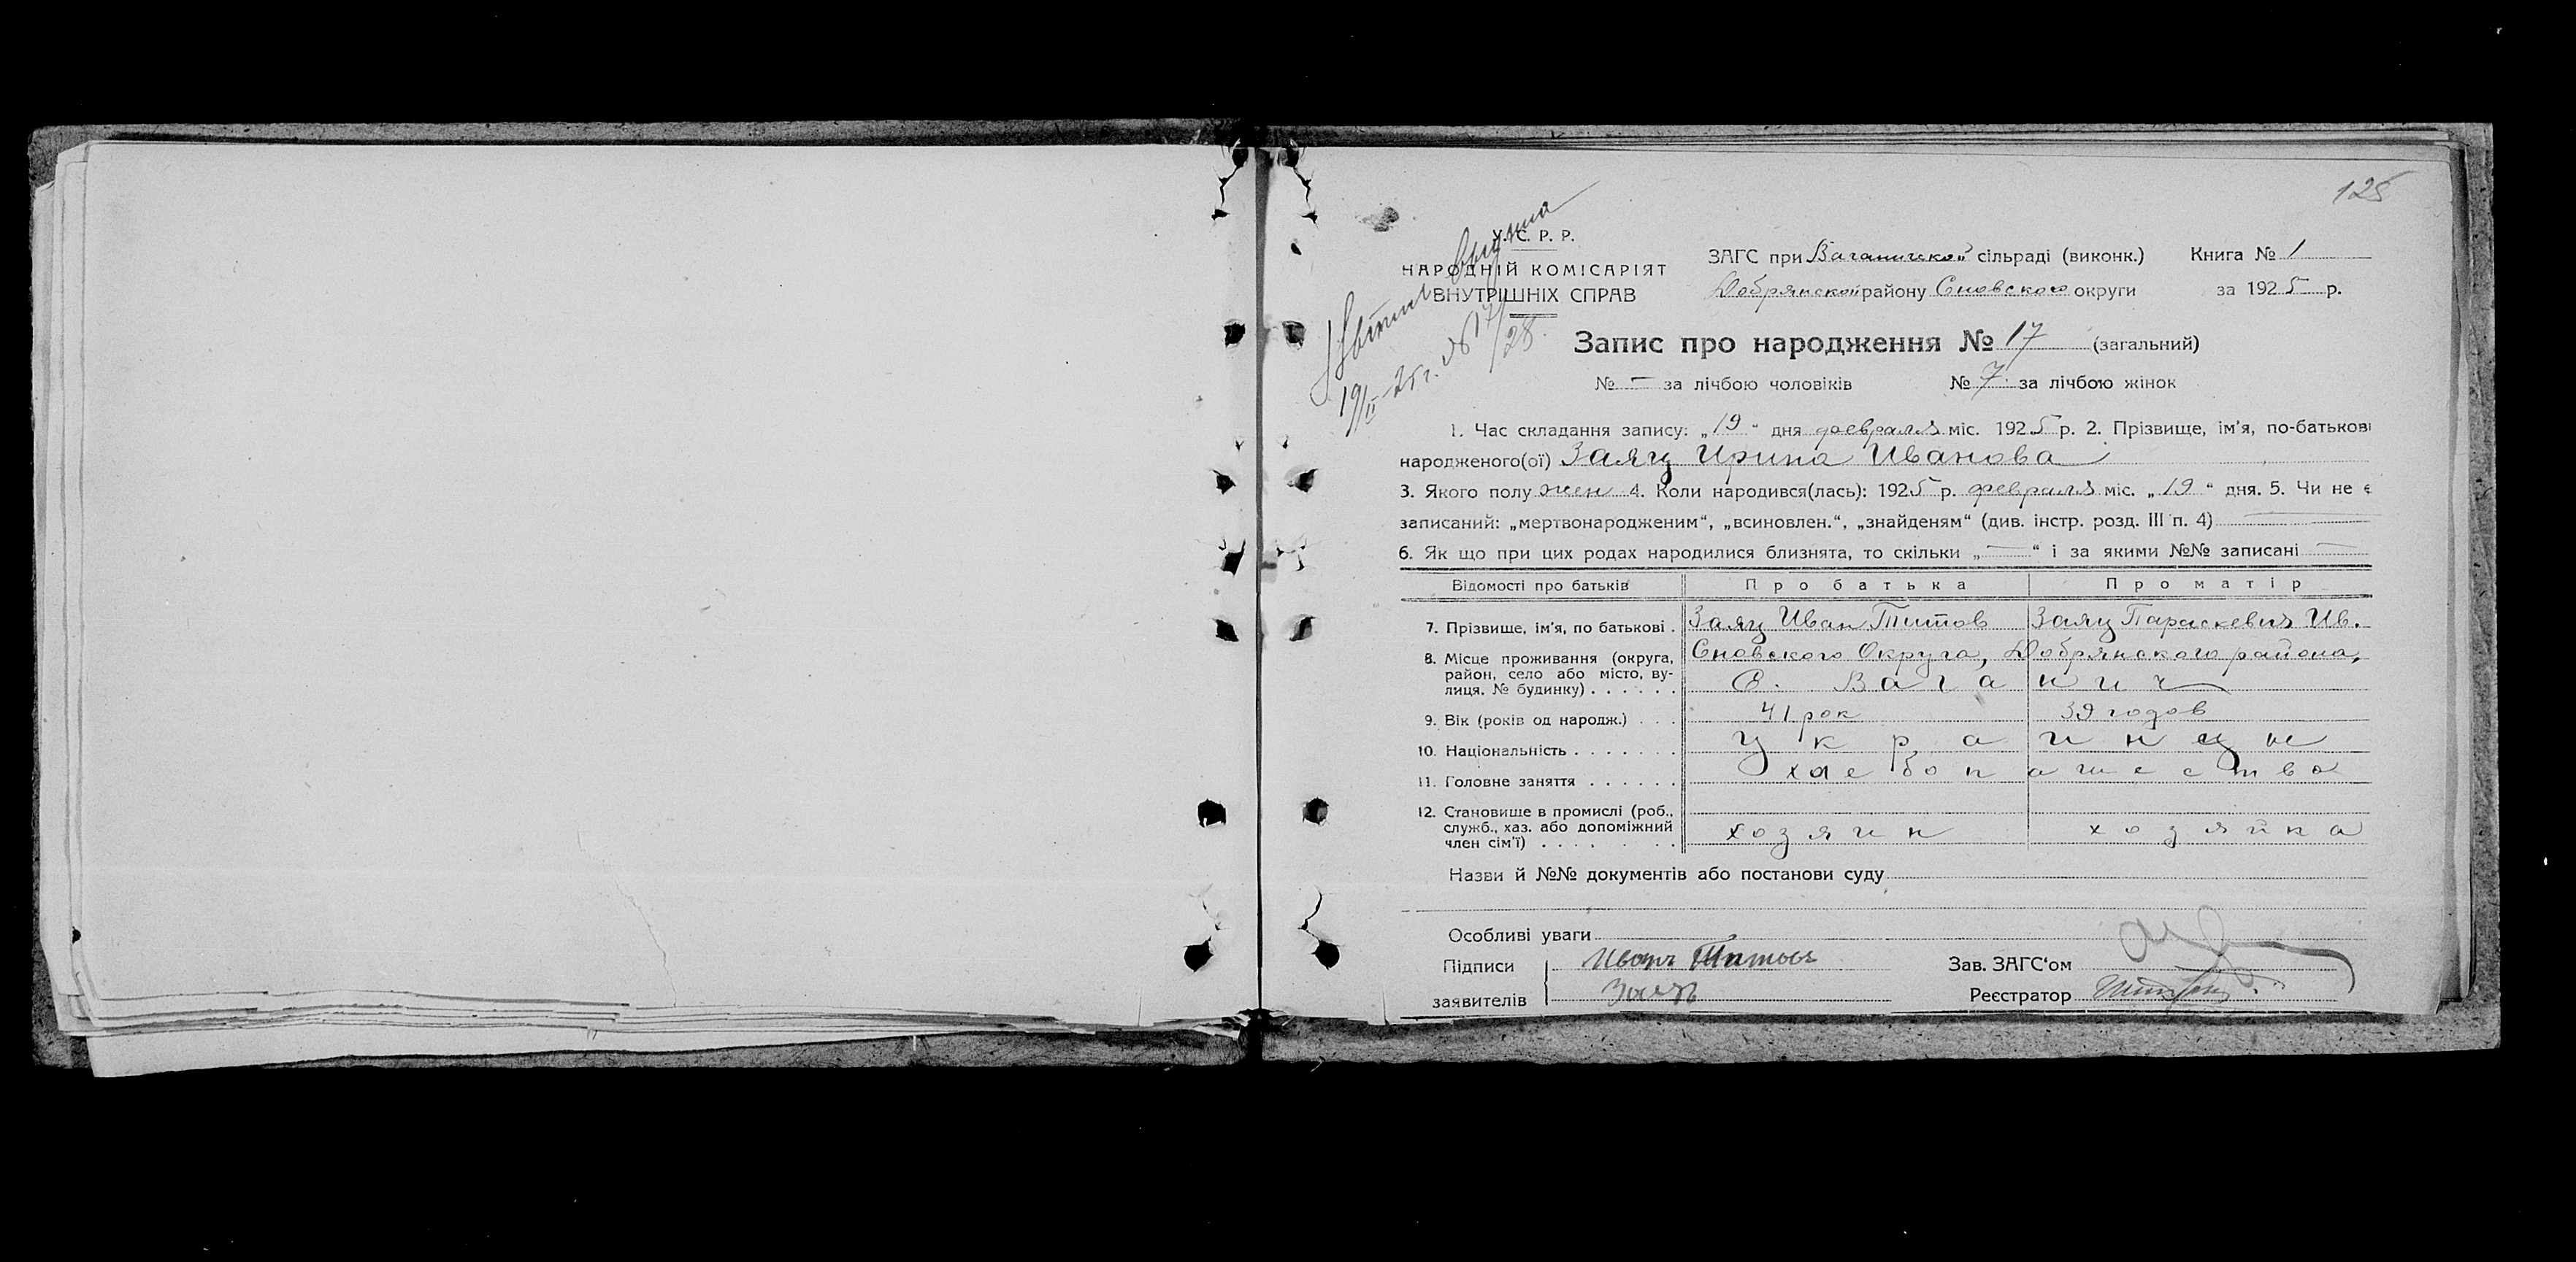 125
У.С.Р.Р.
НАРОДНІЙ КОМІСАРІЯТ
ВНУТРІШНІХ СПРАВ
выдана
19/II-25 г. № 17/28.
ЗАГС при Ваганичской сільраді (виконк.) Книга № 1
Добрянской району Сновского округи за 1925 р.
Запис про народження № 17 (загальний)
№ — за лічбою чоловіків № 7 за лічбою жінок
1. Час складання запису: „19“ дня февраля міс. 1925 р. 2. Прізвище, ім'я, по-батькові
народженого(ої) Заяц Ирина Иванова
3. Якого полу жен 4. Коли народився(лась): 1925 р. февраля міс. „19“ дня. 5. Чи не є
записаний: „мертвонародженим“, „всиновлен.“, „знайденям“ (див. інстр. розд. III п. 4) —
6. Як що при цих родах народилися близнята, то скільки „—“ і за якими №№ записані —
Відомості про батьків Про батька Про матір
7. Прізвище, ім'я, по батькові . Заяц Иван Титов Заяц Параскевия Ив.
8. Місце проживання (округа, Сновского Округа, Добрянского района,
район, село або місто, ву-
лиця, № будинку) . . . . . . С. Ваганич
9. Вік (років од народж.) . . . 41 рок 39 годов
10. Національність . . . . . . . украинцы
11. Головне заняття . . . . . . хлебопашество
12. Становище в промислі (роб.,
служб., хаз. або допоміжний
член сім'ї) . . . . . . . хозяин хозяйка
Назви й №№ документів або постанови суду
Особливі уваги
Підписи Иванъ Титовъ Зав. ЗАГС'ом
заявителів Заяцъ Реєстратор